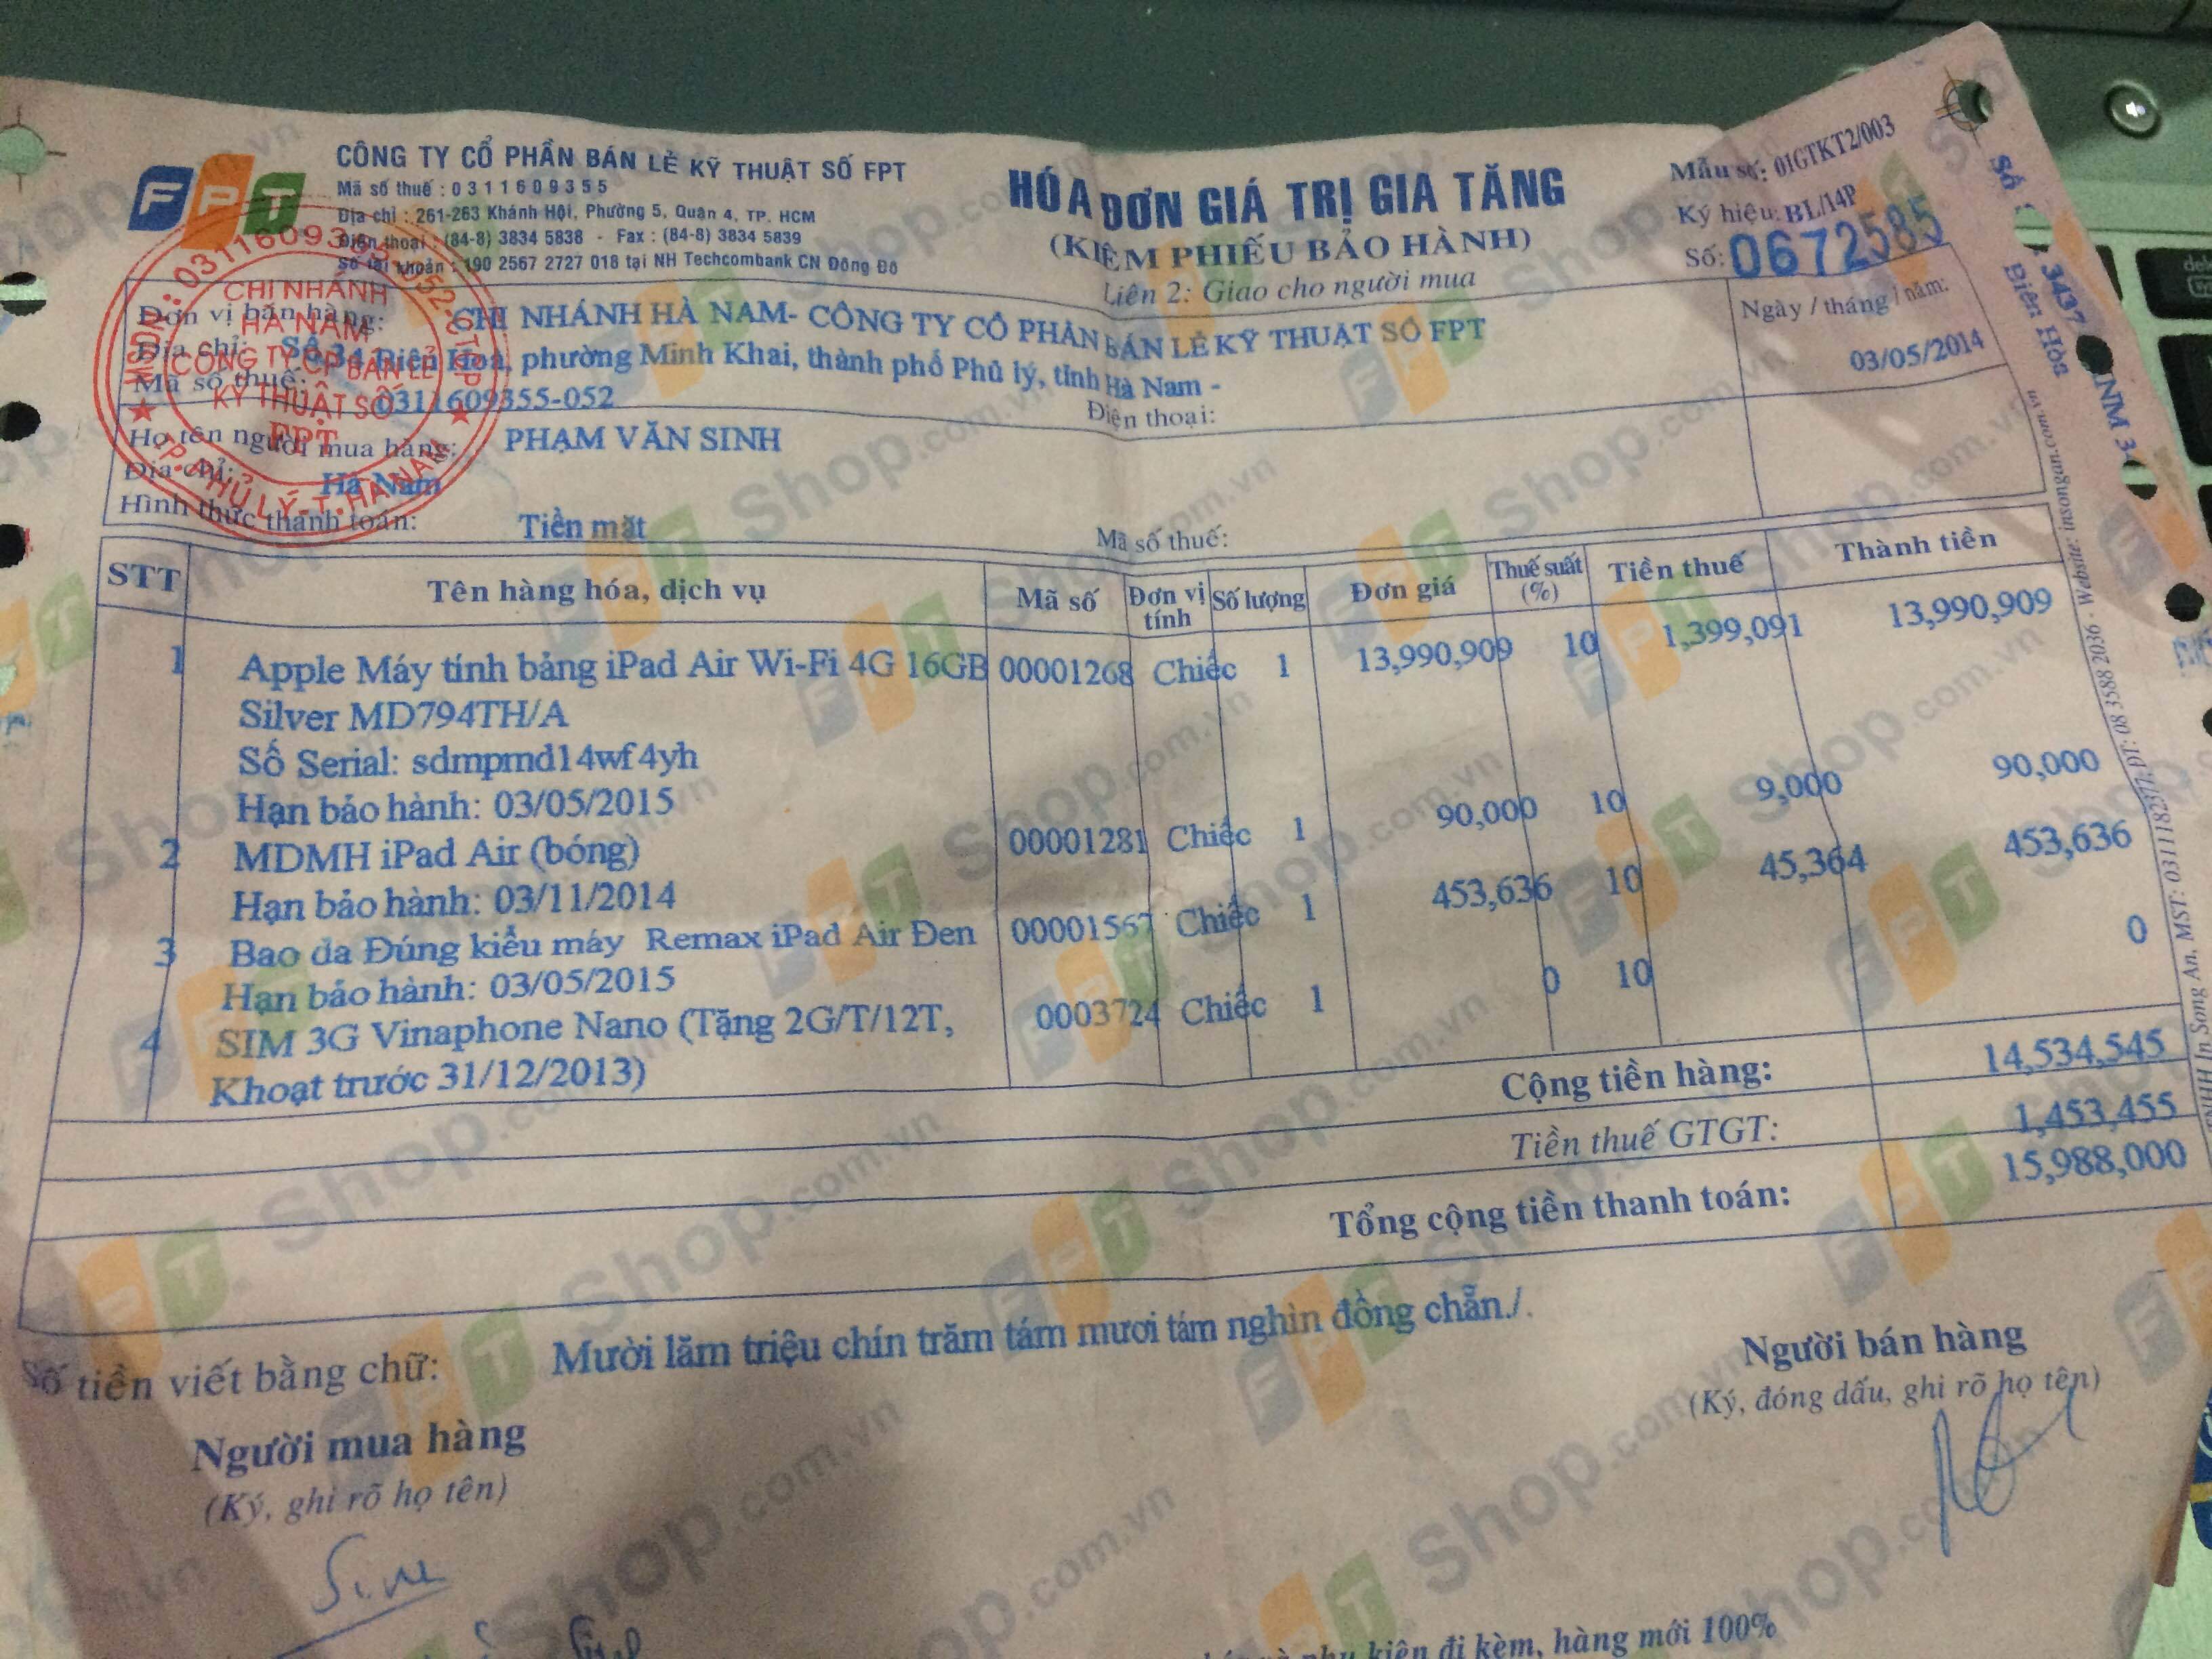 FPT
CÔNG TY CỔ PHẦN BÁN LẺ KỸ THUẬT SỐ FPT
Mã số thuế : 0 3 1 1 6 0 9 3 5 5
Địa chỉ : 261-263 Khánh Hội, Phường 5, Quận 4, TP. HCM
Điện thoại : (84-8) 3834 5838 - Fax : (84-8) 3834 5839
Số tài khoản : 190 2567 2727 018 tại NH Techcombank CN Đông Đô
HÓA ĐƠN GIÁ TRỊ GIA TĂNG
(KIÊM PHIẾU BẢO HÀNH)
Liên 2: Giao cho người mua
Mẫu số: 01GTKT2/003
Ký hiệu: BL/14P
Số: 0672585
Ngày / tháng / năm:
03/05/2014
Đơn vị bán hàng: CHI NHÁNH HÀ NAM- CÔNG TY CỔ PHẦN BÁN LẺ KỸ THUẬT SỐ FPT
Địa chỉ: Số 34 Biên Hoà, phường Minh Khai, thành phố Phủ lý, tỉnh Hà Nam -
Mã số thuế: 0311609355-052
Điện thoại:
Họ tên người mua hàng: PHẠM VĂN SINH
Địa chỉ: Hà Nam
Hình thức thanh toán: Tiền mặt
Mã số thuế:
CHI NHÁNH
HÀ NAM
CÔNG TY CP BÁN LẺ
KỸ THUẬT SỐ
FPT
TP. PHỦ LÝ - T. HÀ NAM
STT Tên hàng hóa, dịch vụ Mã số Đơn vị tính Số lượng Đơn giá Thuế suất (%) Tiền thuế Thành tiền
1 Apple Máy tính bảng iPad Air Wi-Fi 4G 16GB 00001268 Chiếc 1 13,990,909 10 1,399,091 13,990,909
Silver MD794TH/A
Số Serial: sdmpmd14wf4yh
Hạn bảo hành: 03/05/2015
2 MDMH iPad Air (bóng) 00001281 Chiếc 1 90,000 10 9,000 90,000
Hạn bảo hành: 03/11/2014
3 Bao da Đúng kiểu máy Remax iPad Air Đen 00001567 Chiếc 1 453,636 10 45,364 453,636
Hạn bảo hành: 03/05/2015
4 SIM 3G Vinaphone Nano (Tặng 2G/T/12T, 0003724 Chiếc 1 0 10 0
Khoạt trước 31/12/2013)
Cộng tiền hàng: 14,534,545
Tiền thuế GTGT: 1,453,455
Tổng cộng tiền thanh toán: 15,988,000
Số tiền viết bằng chữ: Mười lăm triệu chín trăm tám mươi tám nghìn đồng chẵn./.
Người mua hàng
(Ký, ghi rõ họ tên)
Người bán hàng
(Ký, đóng dấu, ghi rõ họ tên)
phụ kiện đi kèm, hàng mới 100%
In Song An, MST: 0311182371. ĐT: 08 3588 2036 - Website: insongan.com.vn
Biên Hòa
FPT Shop.com.vn